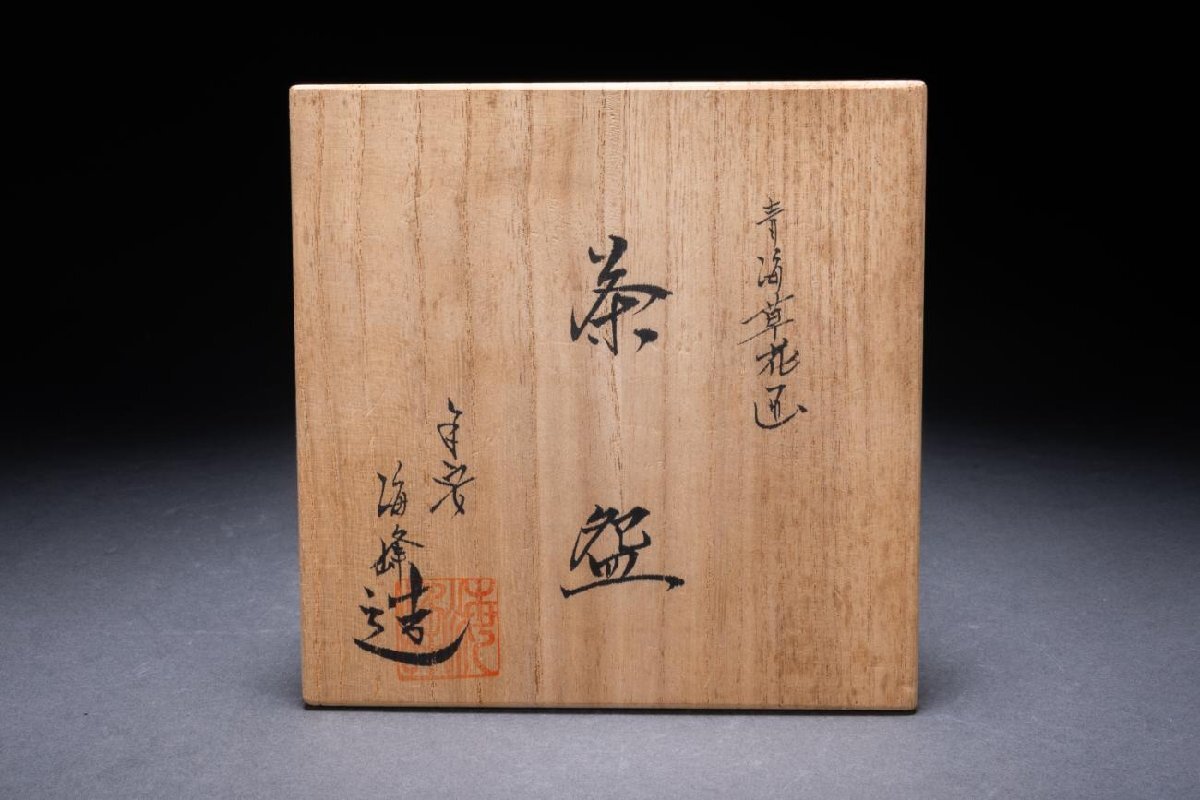 青海草花画
茶盌
平安
海峰造